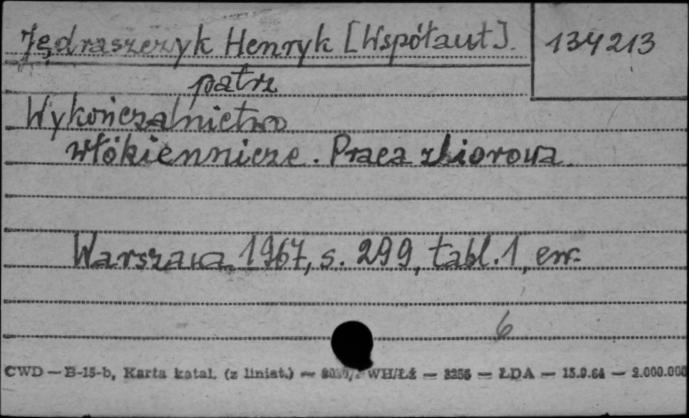 Jędraszczyk Henryk [Współaut]. 134213
patrz
Wykończalnictwo
włókiennicze. Praca zbiorowa.
Warszawa, 1967, s. 299, tabl. 1, err.
6
CWD — B-15-b, Karta katal. (z liniat.) — WH/Łź — 3255 — ŁDA — 15.9.64 — 2.000.000